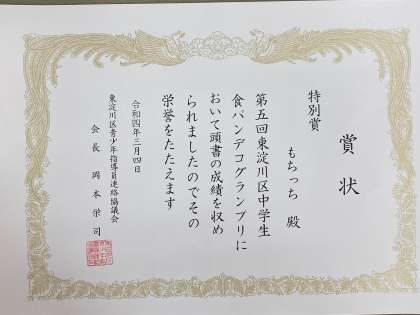 賞状
特別賞
もちっち 殿
第五回東淀川区中学生
食パンデコグランプリに
おいて頭書の成績を収め
られましたのでその
栄誉をたたえます
令和四年三月四日
東淀川区青少年指導員連絡協議会
会長 岡本栄司